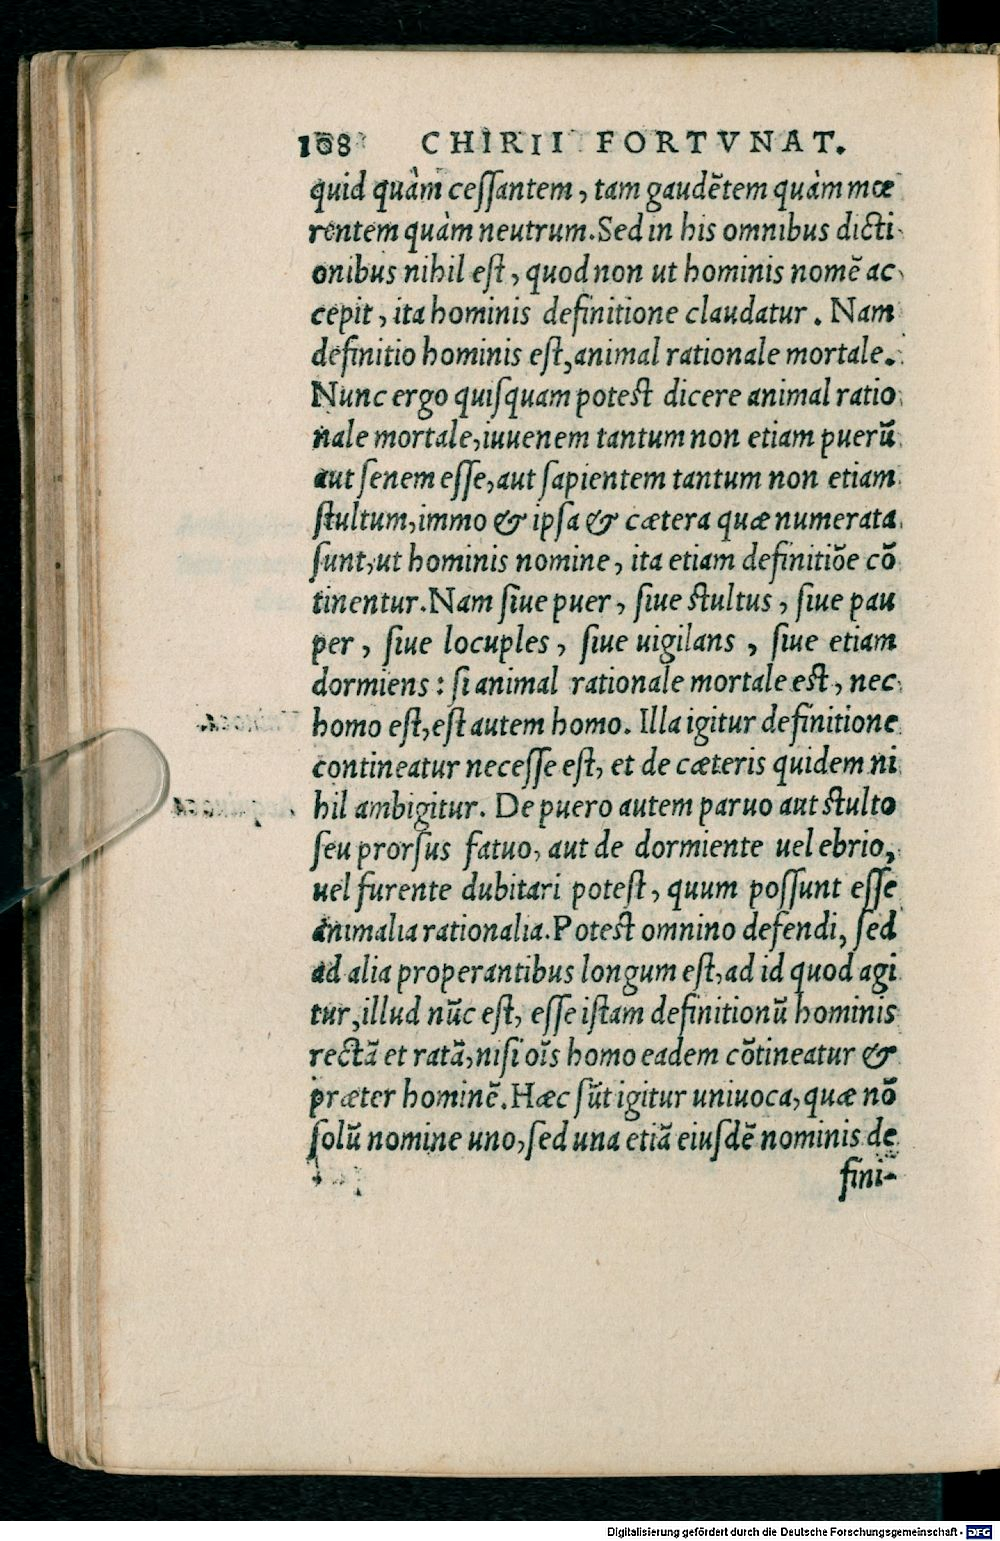 108 CHIRII FORTVNAT.
quid quàm ceſſantem, tam gaudẽtem quàm mœ
rentem quàm neutrum. Sed in his omnibus dicti
onibus nihil eſt, quod non ut hominis nomẽ ac
cepit, ita hominis definitione claudatur. Nam
definitio hominis eſt, animal rationale mortale.
Nunc ergo quiſquam poteſt dicere animal ratio
nale mortale, iuuenem tantum non etiam puerũ
aut ſenem eſſe, aut ſapientem tantum non etiam
ſtultum, immo & ipſa & cætera quæ numerata
ſunt, ut hominis nomine, ita etiam definitiõe cõ
tinentur. Nam ſiue puer, ſiue ſtultus, ſiue pau
per, ſiue locuples, ſiue uigilans, ſiue etiam
dormiens: ſi animal rationale mortale eſt, nec
homo eſt, eſt autem homo. Illa igitur definitione
contineatur neceſſe eſt, et de cæteris quidem ni
hil ambigitur. De puero autem paruo aut ſtulto
ſeu prorſus fatuo, aut de dormiente uel ebrio,
uel furente dubitari poteſt, quum poſſunt eſſe
animalia rationalia. Poteſt omnino defendi, ſed
ad alia properantibus longum eſt, ad id quod agi
tur, illud nũc eſt, eſſe iſtam definitionũ hominis
rectã et ratã, niſi oĩs homo eadem cõtineatur &
præter hominẽ. Hæc ſũt igitur uniuoca, quæ nõ
ſolũ nomine uno, ſed una etiã eiuſdẽ nominis de
fini-
Digitalisierung gefördert durch die Deutsche Forschungsgemeinschaft - DFG